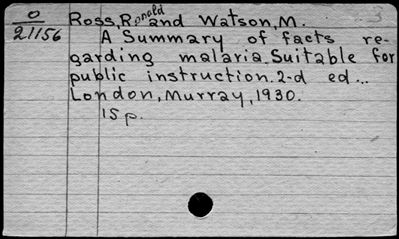 O Ross, Ronald and Watson, M.
21156 A Summary of facts re-
garding malaria. Suitable for
public instruction. 2-d ed...
London, Murray, 1930.
15 p.